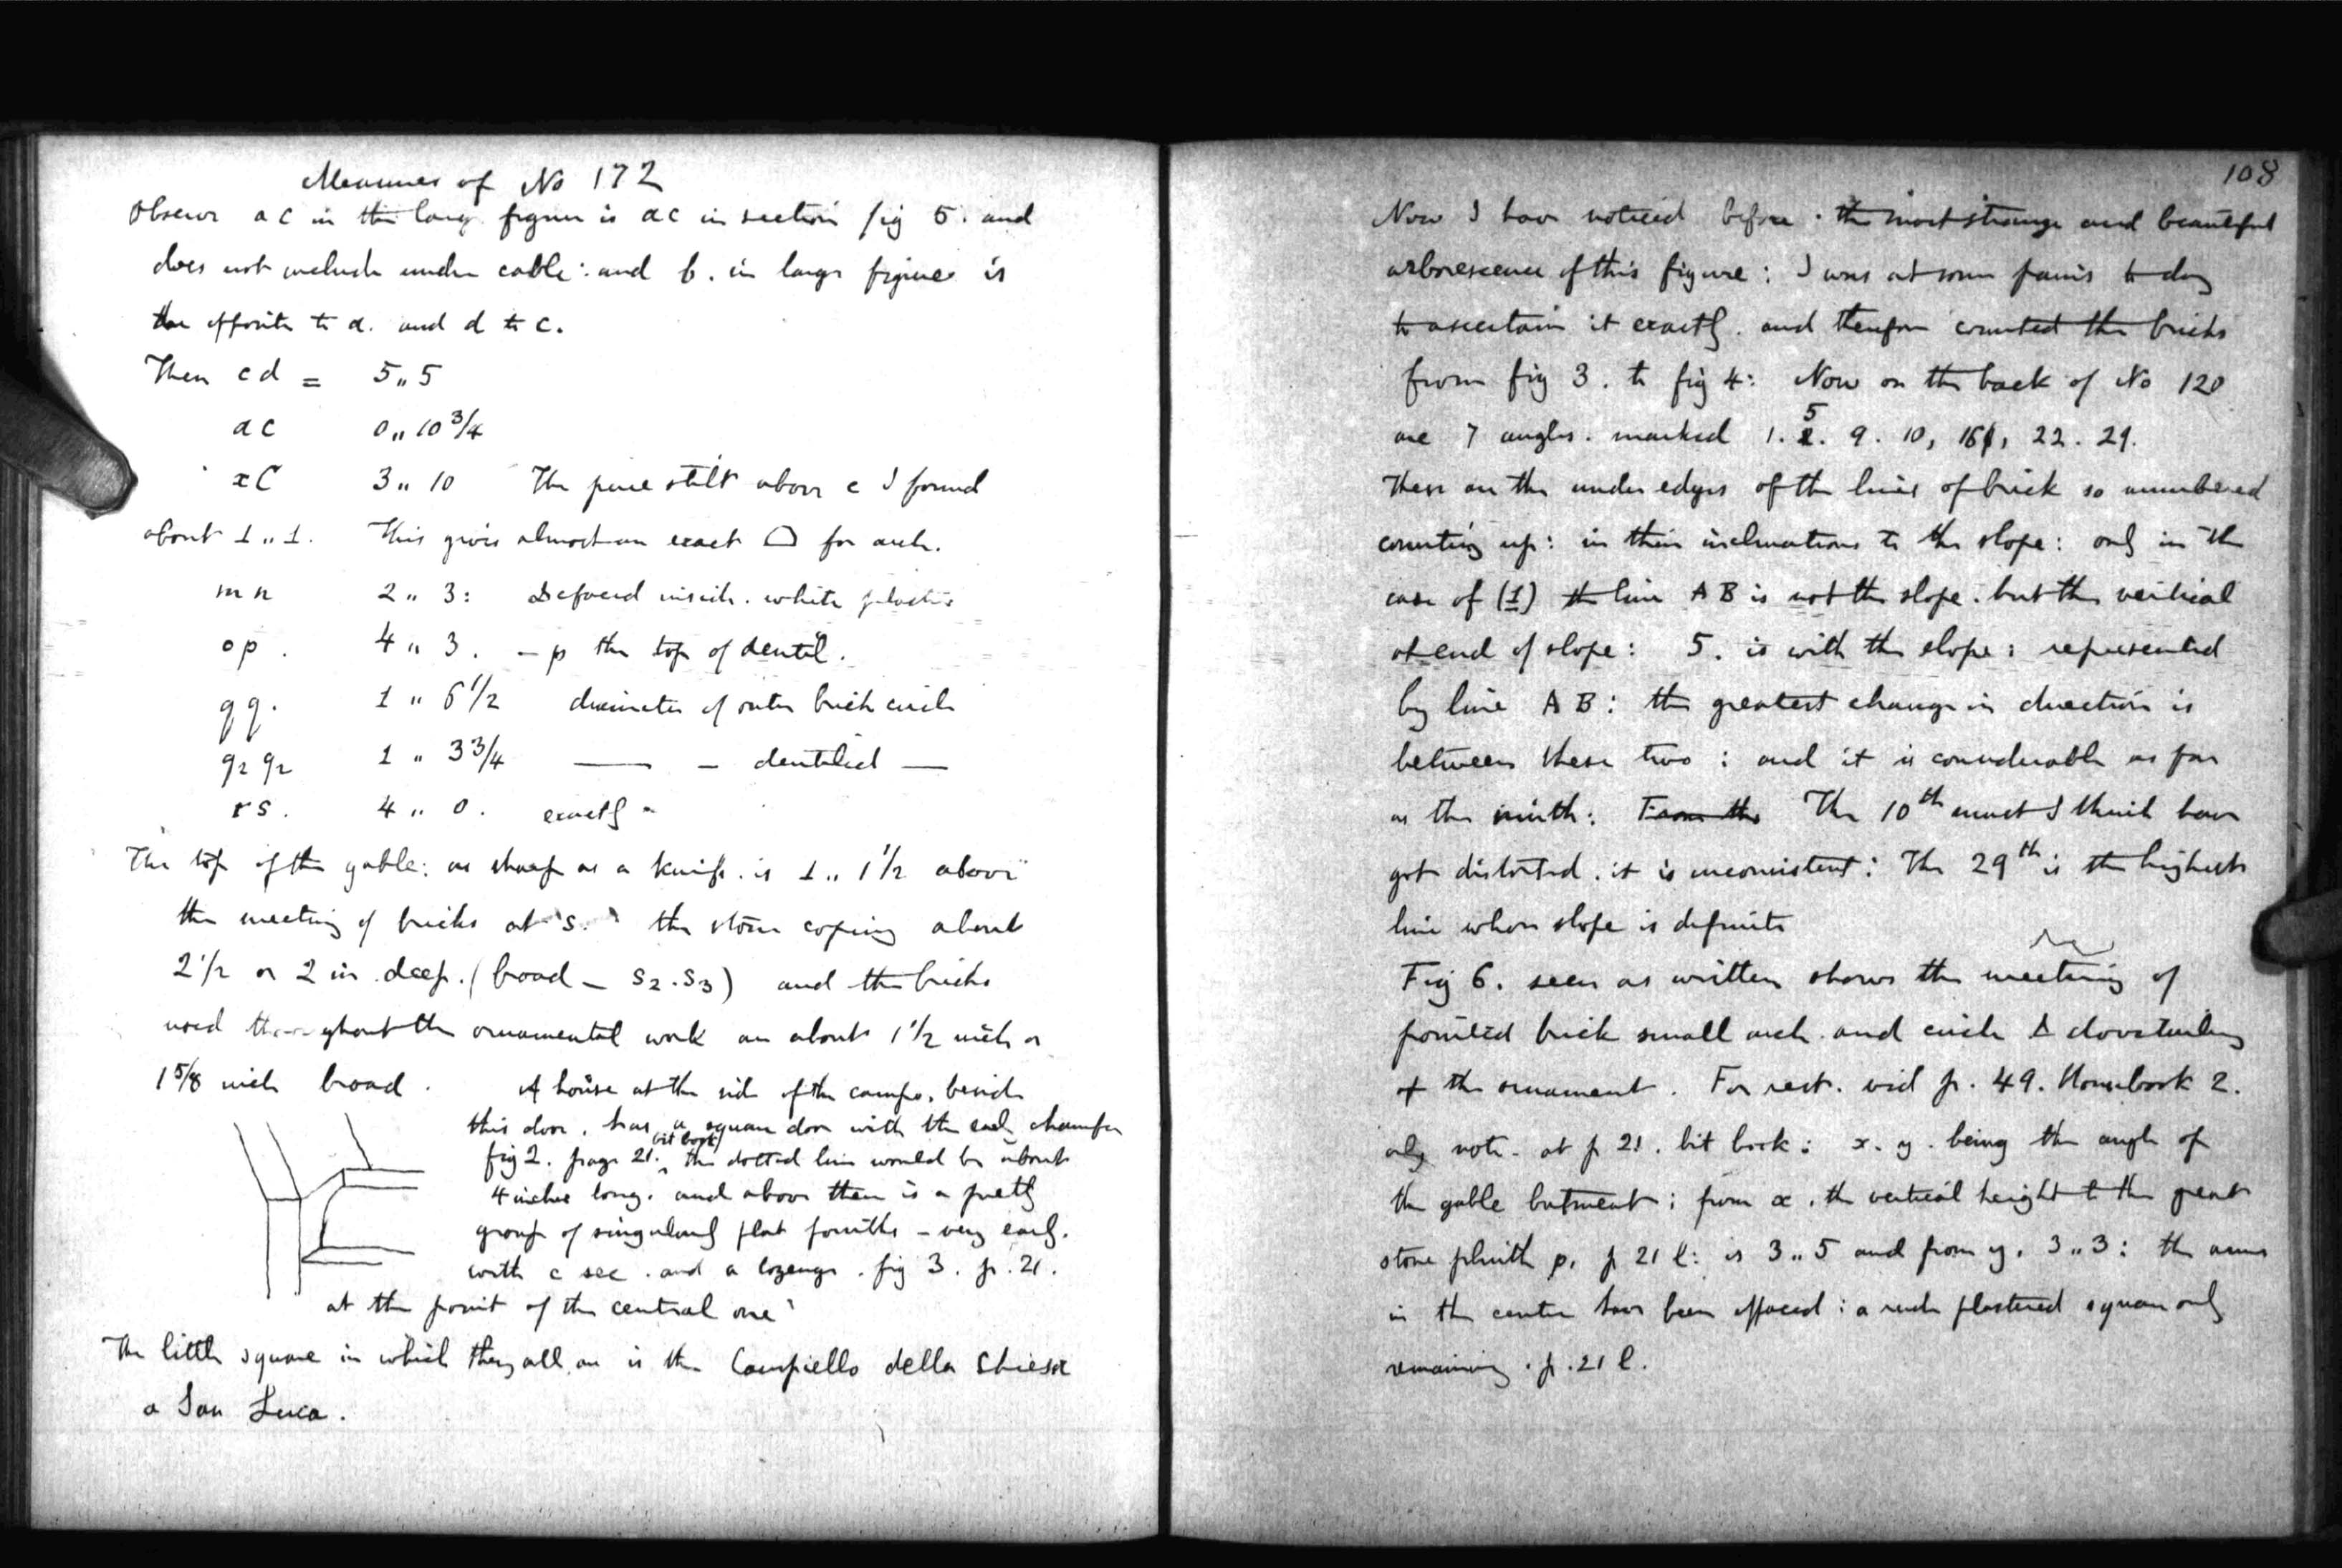 Measures of No 172
Observe a c in the large figure is a c in section fig 5. and
does not include under cable: and b. in large figure is
the opposite to a. and d to c.
Then c d = 5,,5
a c 0,, 10 3/4
x c 3,, 10 The pure stilt above c I found
about 1,,1. This gives almost an exact for arch.
m n 2,, 3: Defaced inside. white plaster
o p. 4,, 3. – p the top of dentil.
q q. 1,, 6 1/2 diameter of outer brick circle
q2 q2 1,, 3 3/4 — – dentilled —
r s. 4,, 0. exactly –
The top of the gable: as sharp as a knife. is 1,, 1 1/2 above
the meeting of bricks at s. the stone coping about
2 1/2 or 2 in. deep. (broad – s2. s3) and the bricks
used throughout the ornamental work are about 1 1/2 inch or
1 5/8 inch broad. A house at the side of the campo, beside
this door, has a square door with the early chamfer
fig 2. page 21. bit book, the dotted line would be about
4 inches long. and above there is a pretty
group of singularly flat fourths – very early.
with c sec. and a lozenge. fig 3. p. 21.
at the point of the central one
The little square in which they all are is the Campiello della Chiesa
a San Luca.
108
Now I have noticed before. the most strange and beautiful
arborescence of this figure: I was at some pains to day
to ascertain it exactly. and therefore counted the bricks
from fig 3. to fig 4: Now on the back of No 120
are 7 angles. marked 1. 5. 9. 10, 16, 22. 29.
These are the under edges of the lines of brick so numbered
counting up: in their inclinations to the slope: only in the
case of (1) the line A B is not the slope. but the vertical
at end of slope: 5. is with the slope: represented
by line A B: the greatest change in direction is
between these two: and it is considerable as far
as the ninth: From the The 10th must I think have
got distorted. it is inconsistent: The 29th is the highest
line whose slope is definite
Fig 6. seen as written shows the meeting of
pointed brick small arch. and circle & dovetailing
of the ornament. For rest. vid p. 49. Housebook 2.
only note. at p 21. bit book: x. y. being the angle of
the gable butment: from x. the vertical height to the great
stone plinth p, p 21 l: is 3,,5 and from y. 3,,3: the arms
in the center have been effaced: a rude plastered square only
remaining. p. 21 l.